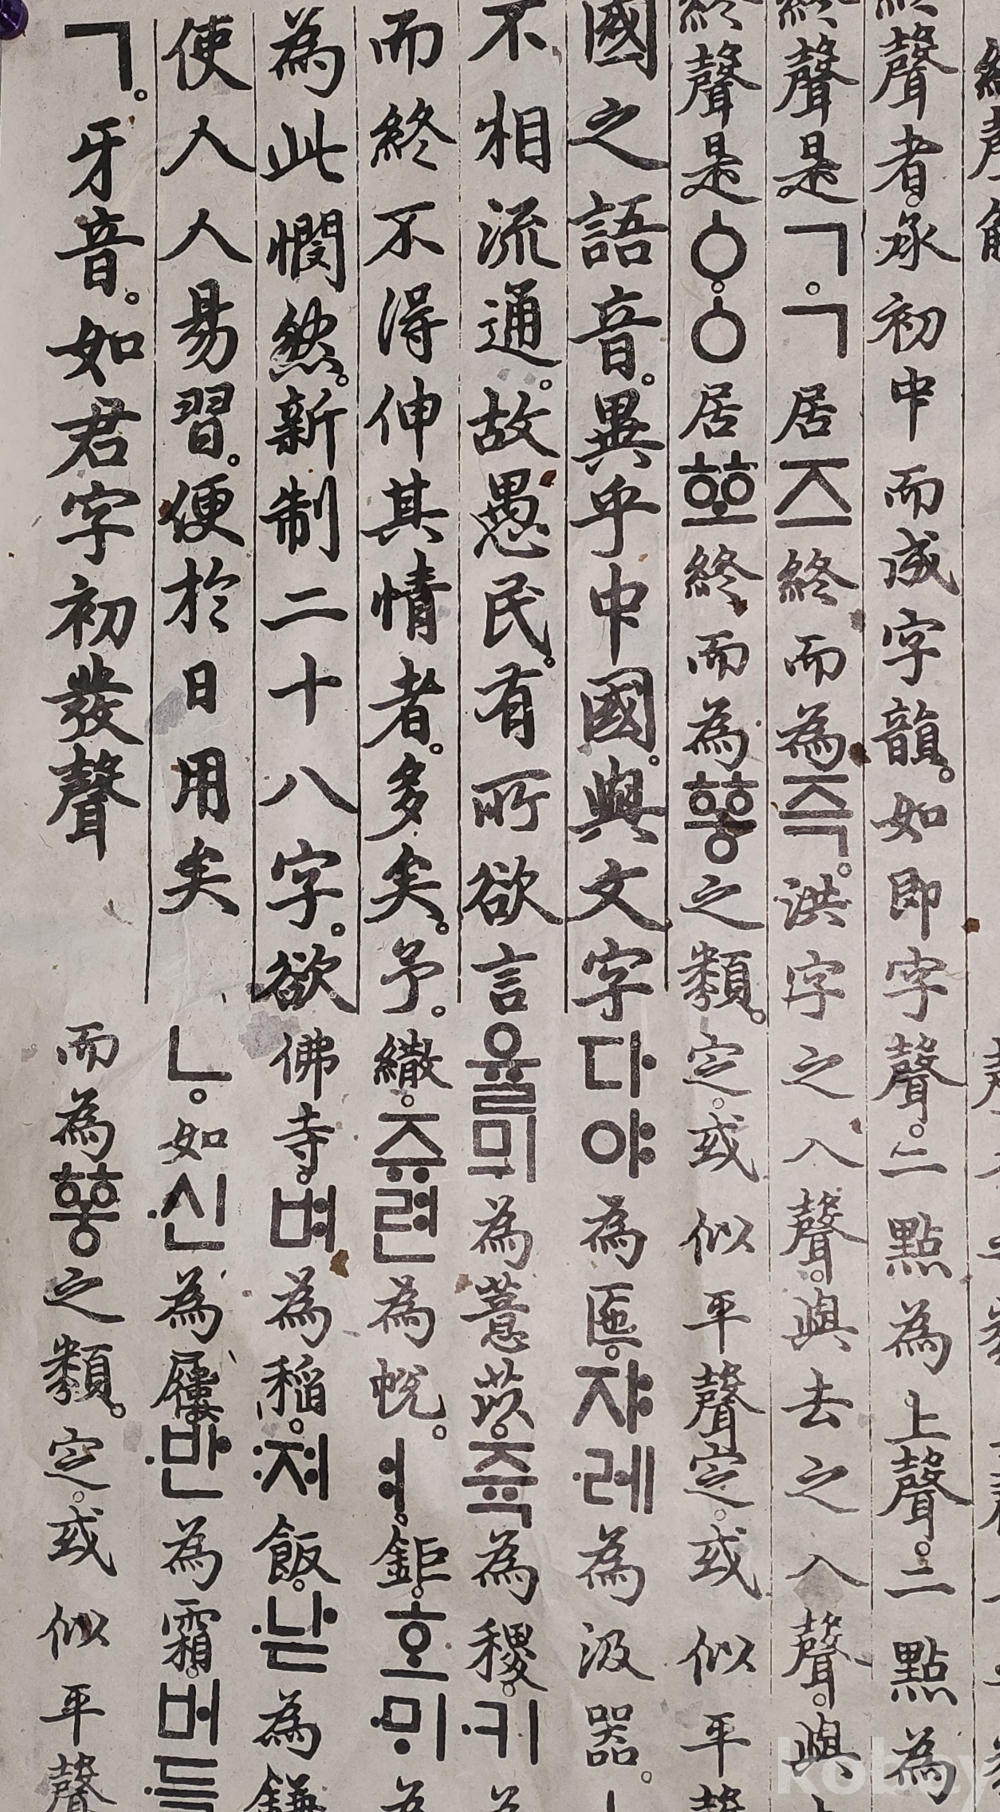 終聲者。承初中而成字韻。如即字聲。二點為上聲。二點為
終聲是ㄱ。ㄱ居즈終而為즉。洪字之入聲。與去之入聲。與
終聲是ㆁ。ㆁ居ᅘᅩ終而為ᅘᅩᇰ之類。定。或似平聲定。或似平聲
國之語音。異乎中國。與文字다야為匜。쟈레為汲器。
不相流通。故愚民。有所欲言율믜為薏苡。為稷。키
而終不得伸其情者。多矣。予。繖。쥬련為帨。ㅕ。鉅。호믜為
為此憫然。新制二十八字。欲佛寺。벼為稲。져飯。낟為鎌
使人人易習。便於日用矣ㄴ。如신為屨。반為霜。버드
ㄱ。牙音。如君字初發聲而為ᅘᅩᇰ之類。定。或似平聲
kobay